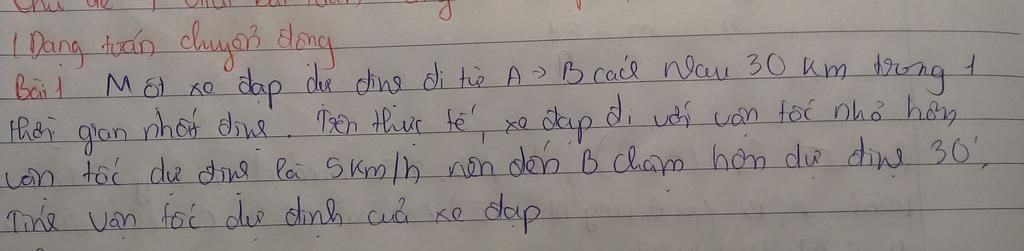 1 Dạng toán chuyển động
Bài 1 Một xe đạp dự định đi từ A → B cách nhau 30 km trong 1
thời gian nhất định. Trên thực tế, xe đạp đi với vận tốc nhỏ hơn
vận tốc dự định là 5km/h nên đến B chậm hơn dự định 30'.
Tính vận tốc dự định của xe đạp